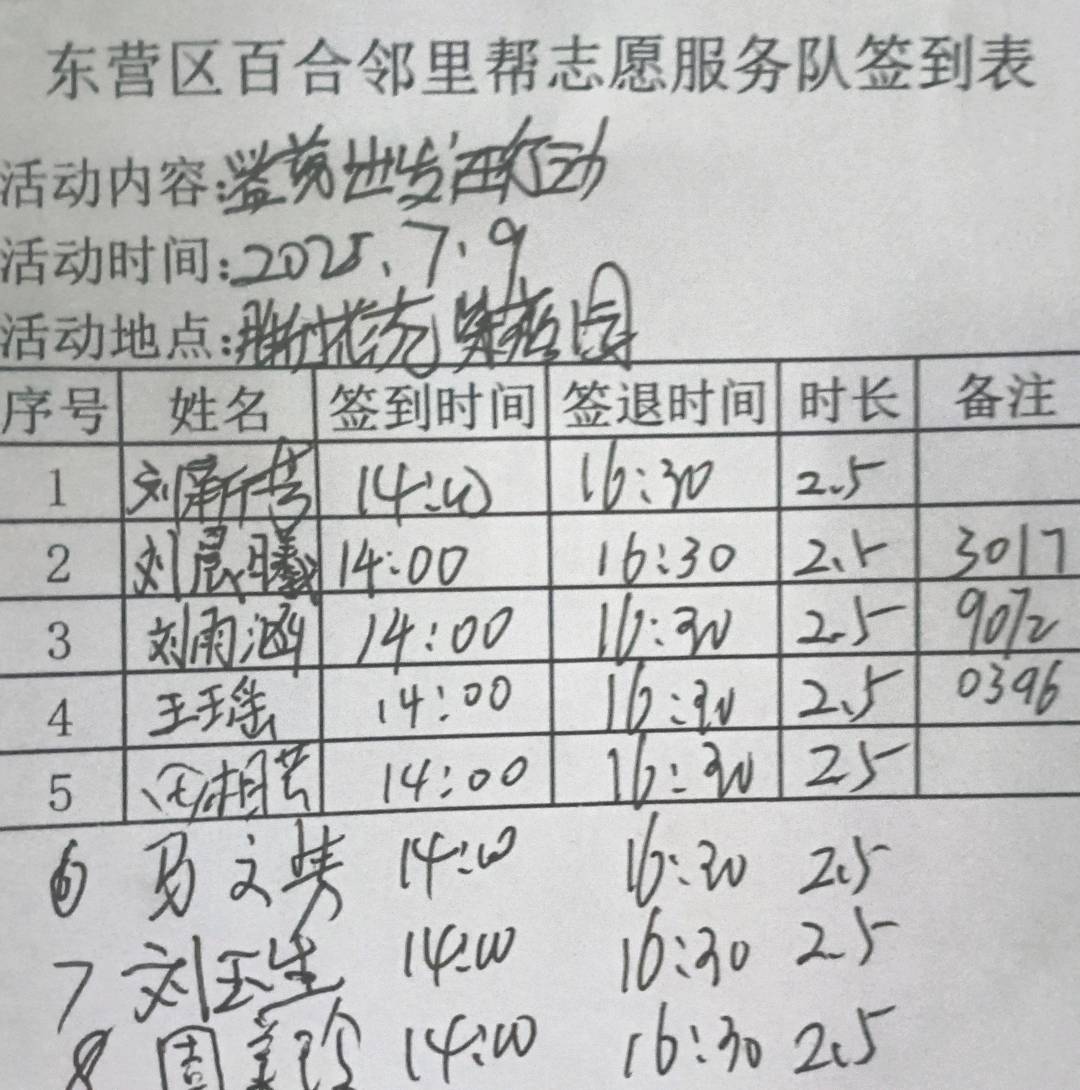 东营区百合邻里帮志愿服务队签到表
活动内容:
活动时间:2025.7.9
活动地点:
序号 姓名 签到时间 签退时间 时长 备注
1 刘新芳 14:00 16:30 2.5
2 刘晨曦 14:00 16:30 2.5 3017
3 刘雨涵 14:00 16:30 2.5 9072
4 王玉瑶 14:00 16:30 2.5 0396
5 14:00 16:30 2.5
6 马文 14:00 16:30 2.5
7 刘玉生 14:00 16:30 2.5
8 周美玲 14:00 16:30 2.5